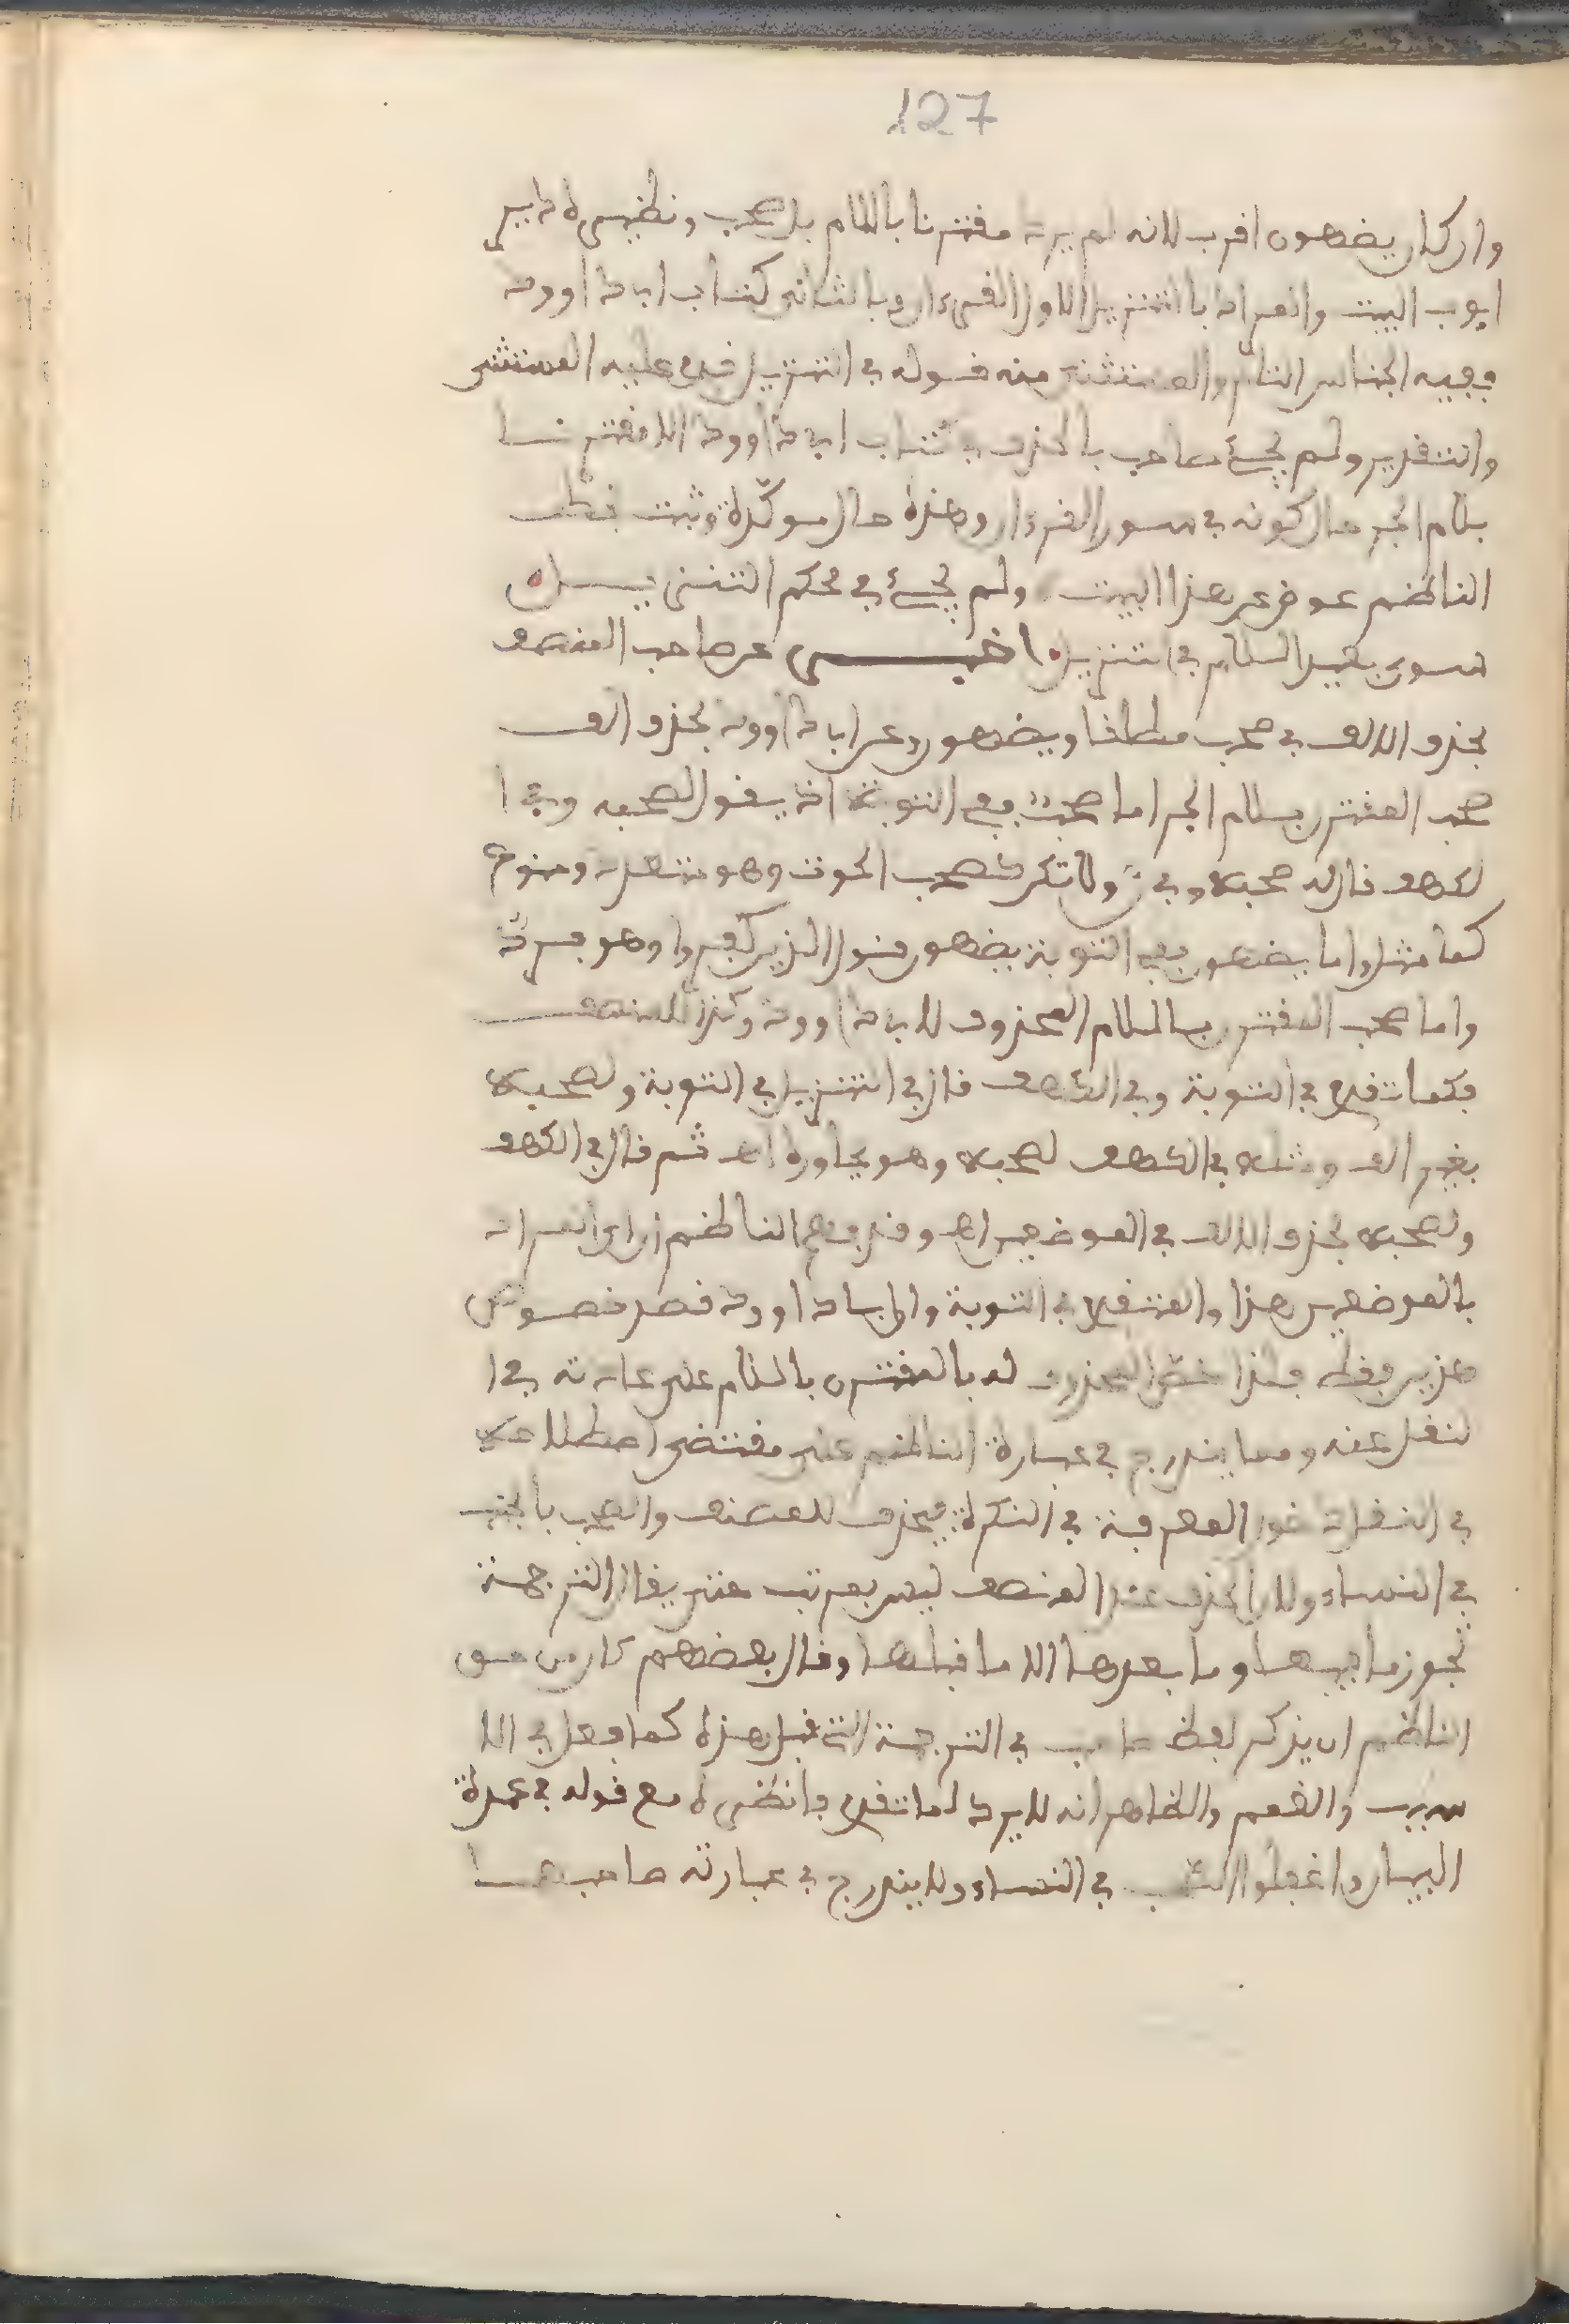 127
وان كان يضهون اقرب لانه لم يرد مقترنا باللام بل صحب ونظيره تدبير
ايوب البيت والمراد بالتنزيل الاول القرءان وبالثاني كتاب ابي داوود
ففيه الجناس التام والمستثنى منه قوله في التنزيل قدم عليه المستثنى
والتقدير ولم يجئ صاحب بالحذف في كتاب ابي داوود الا مقترنـا
بلام الجر حال كونه في سور القرءان وهذه حال موكدة وثبت بخط
الناظم عوض عن هذا البيت ولم يجئ في محكم التنزيـل
سوى بغير اللام في التنزيل اخبـر عن صاحب المنصف
بحذف الالف في صحب مطلقا ويضهون وعن ابي داوود بحذف الف
صحب المقترن بلام الجر اما صحب ففي التوبة اذ يقول لصحبه وفي ا
لكهف قال له صحبه وفي ن ولا تكن كصحب الحوت وهو متعدد ومنوع
كما مثل واما يضهون ففي التوبة يضهون قول الذين كفروا وهو فرد
واما صحب المقترن باللام المحذوف لابي داوود وكذا للمنصف
فكما تقدم في التوبة وفي الكهف قال في التنزيل في التوبة ولصحبه
بغير الف ومثله في الكهف لصحبه وهو يحاوره اهـ ثم قال في الكهف
ولصحبه بحذف الالف في الموضعين اهـ وقد فهم الناظم ان المراد
بالموضعين هذا والمتقدم في التوبة وان ابا داوود قصد خصوص
هذين فقط فلذا خص المحذوف له بالمقترن باللام على عادته في ا
لنقل عنه ومما يندرج في عبارة الناظم على مقتضى اصطلاحه
في النقل اندراج المعرفة في النكرة فيحذف للمصنف والصحب بالجنب
في النساء ولان الحذف عند المنصف ليس بمرتب حتى يقال الترجمة
تحوز ما فيها وما بعدها الا ما قبلها وقال بعضهم كان من حق
الناظم ان يذكر لفظ صاحب في الترجمة التي قبل هذه كما فعل في الا
سبب والغمم والظاهر انه لا يرد لما تقدم فانظره مع قوله في عمدة
البيان واغفلوا الصحب في النساء ولا يندرج في عبارته صاحبهـا